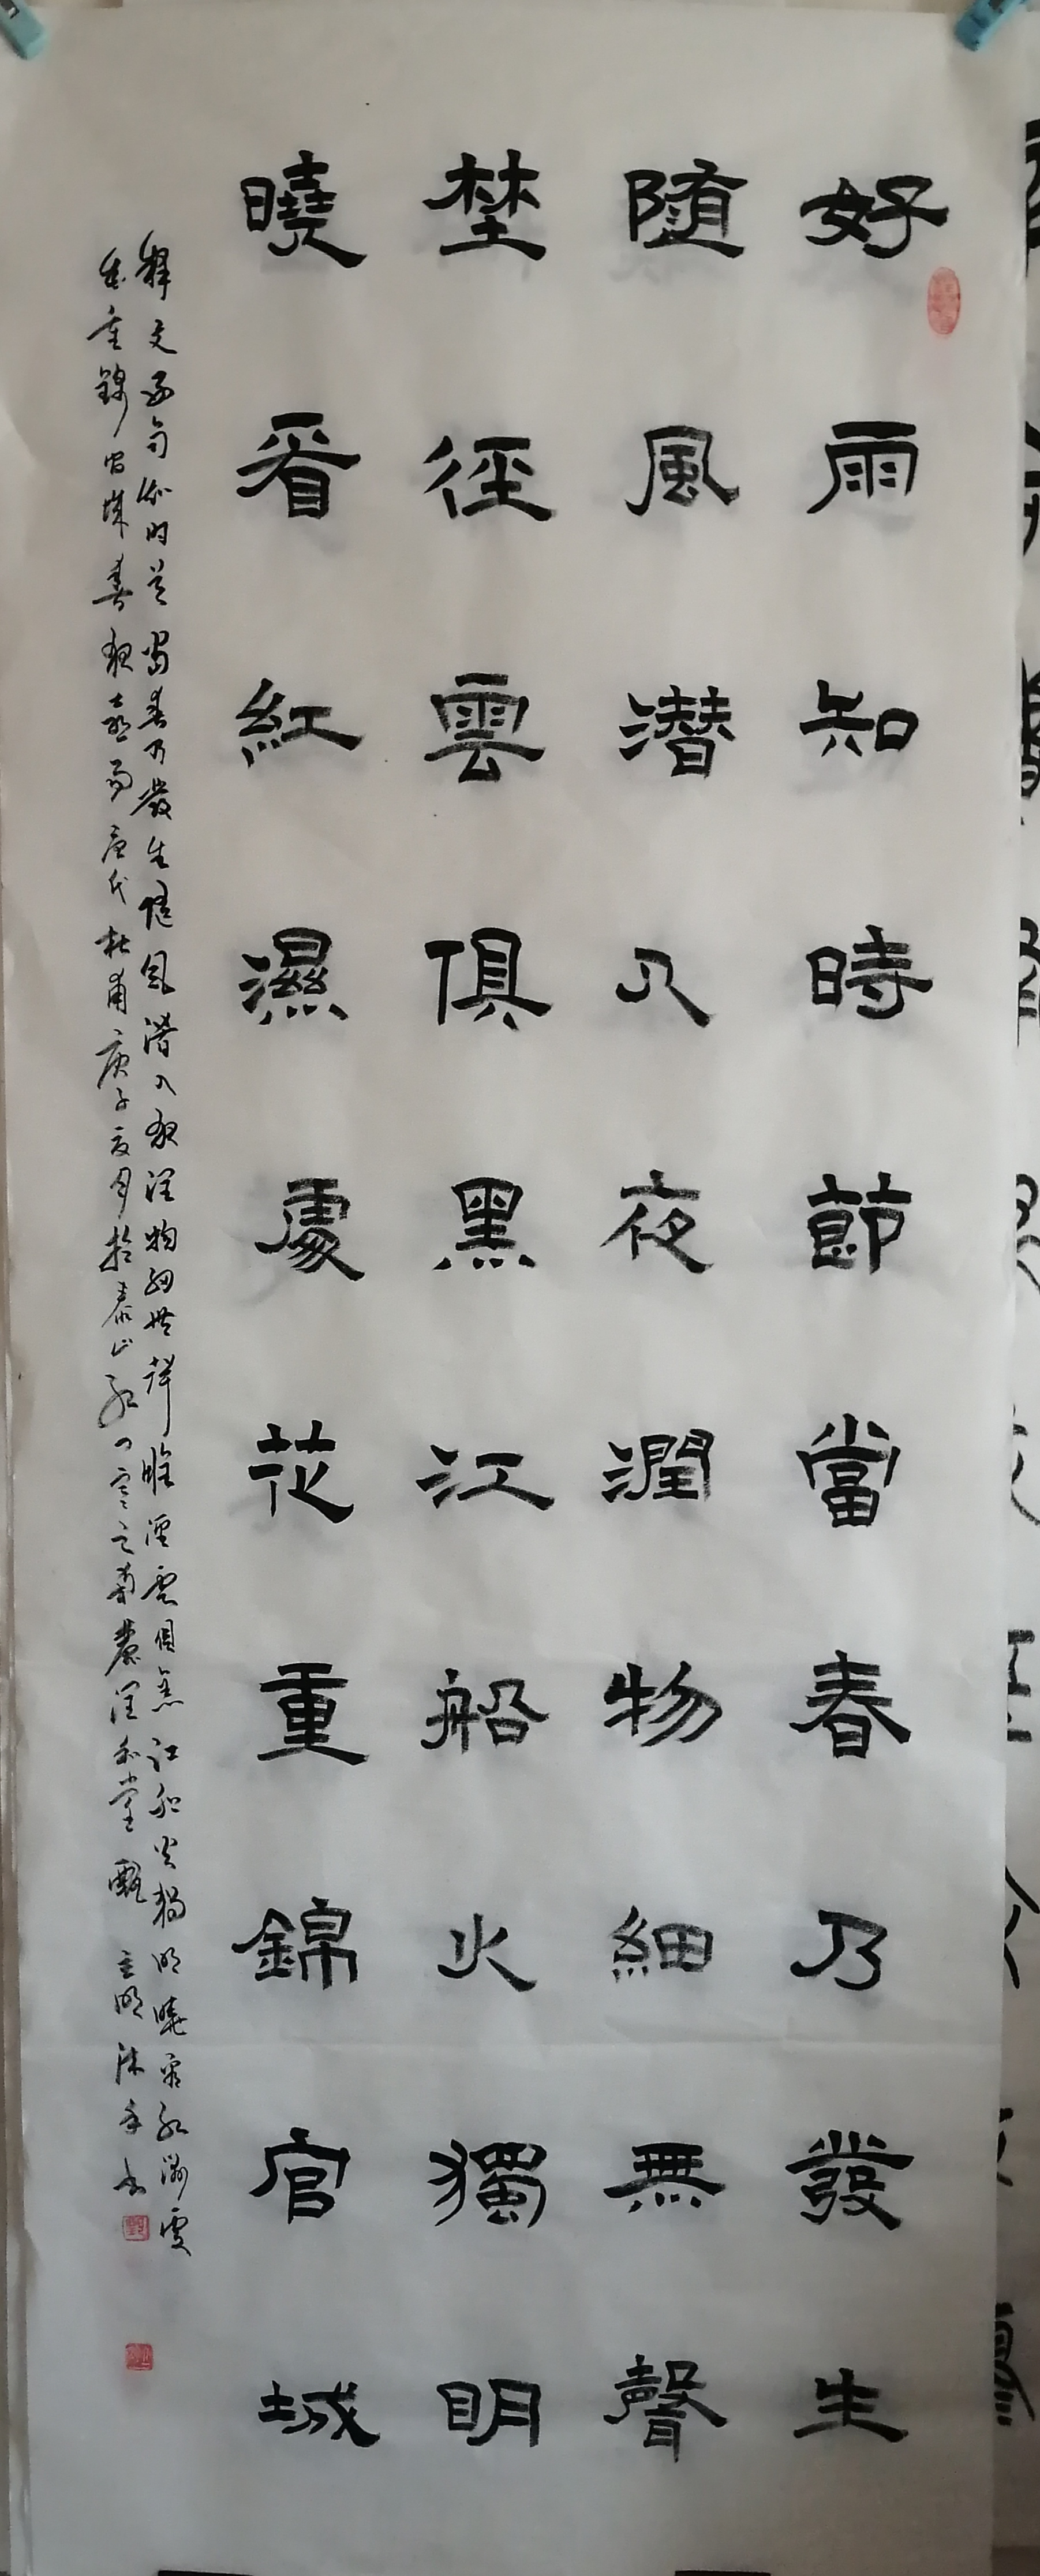 好雨知時節當春乃發生
随風潛入夜潤物細無聲
埜徑雲俱黑江船火獨明
曉看紅濕處花重錦官城
释文 好雨知时节 當春乃發生 随風潜入夜 润物細無声 雲俱黑 江船火獨明 曉看红濕處
花重錦官城 春夜喜雨 唐代 杜甫 庚子 月於泰山 之 潤 堂 甄 主明 沐手書